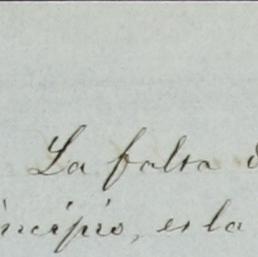 La falta
incipio, es la